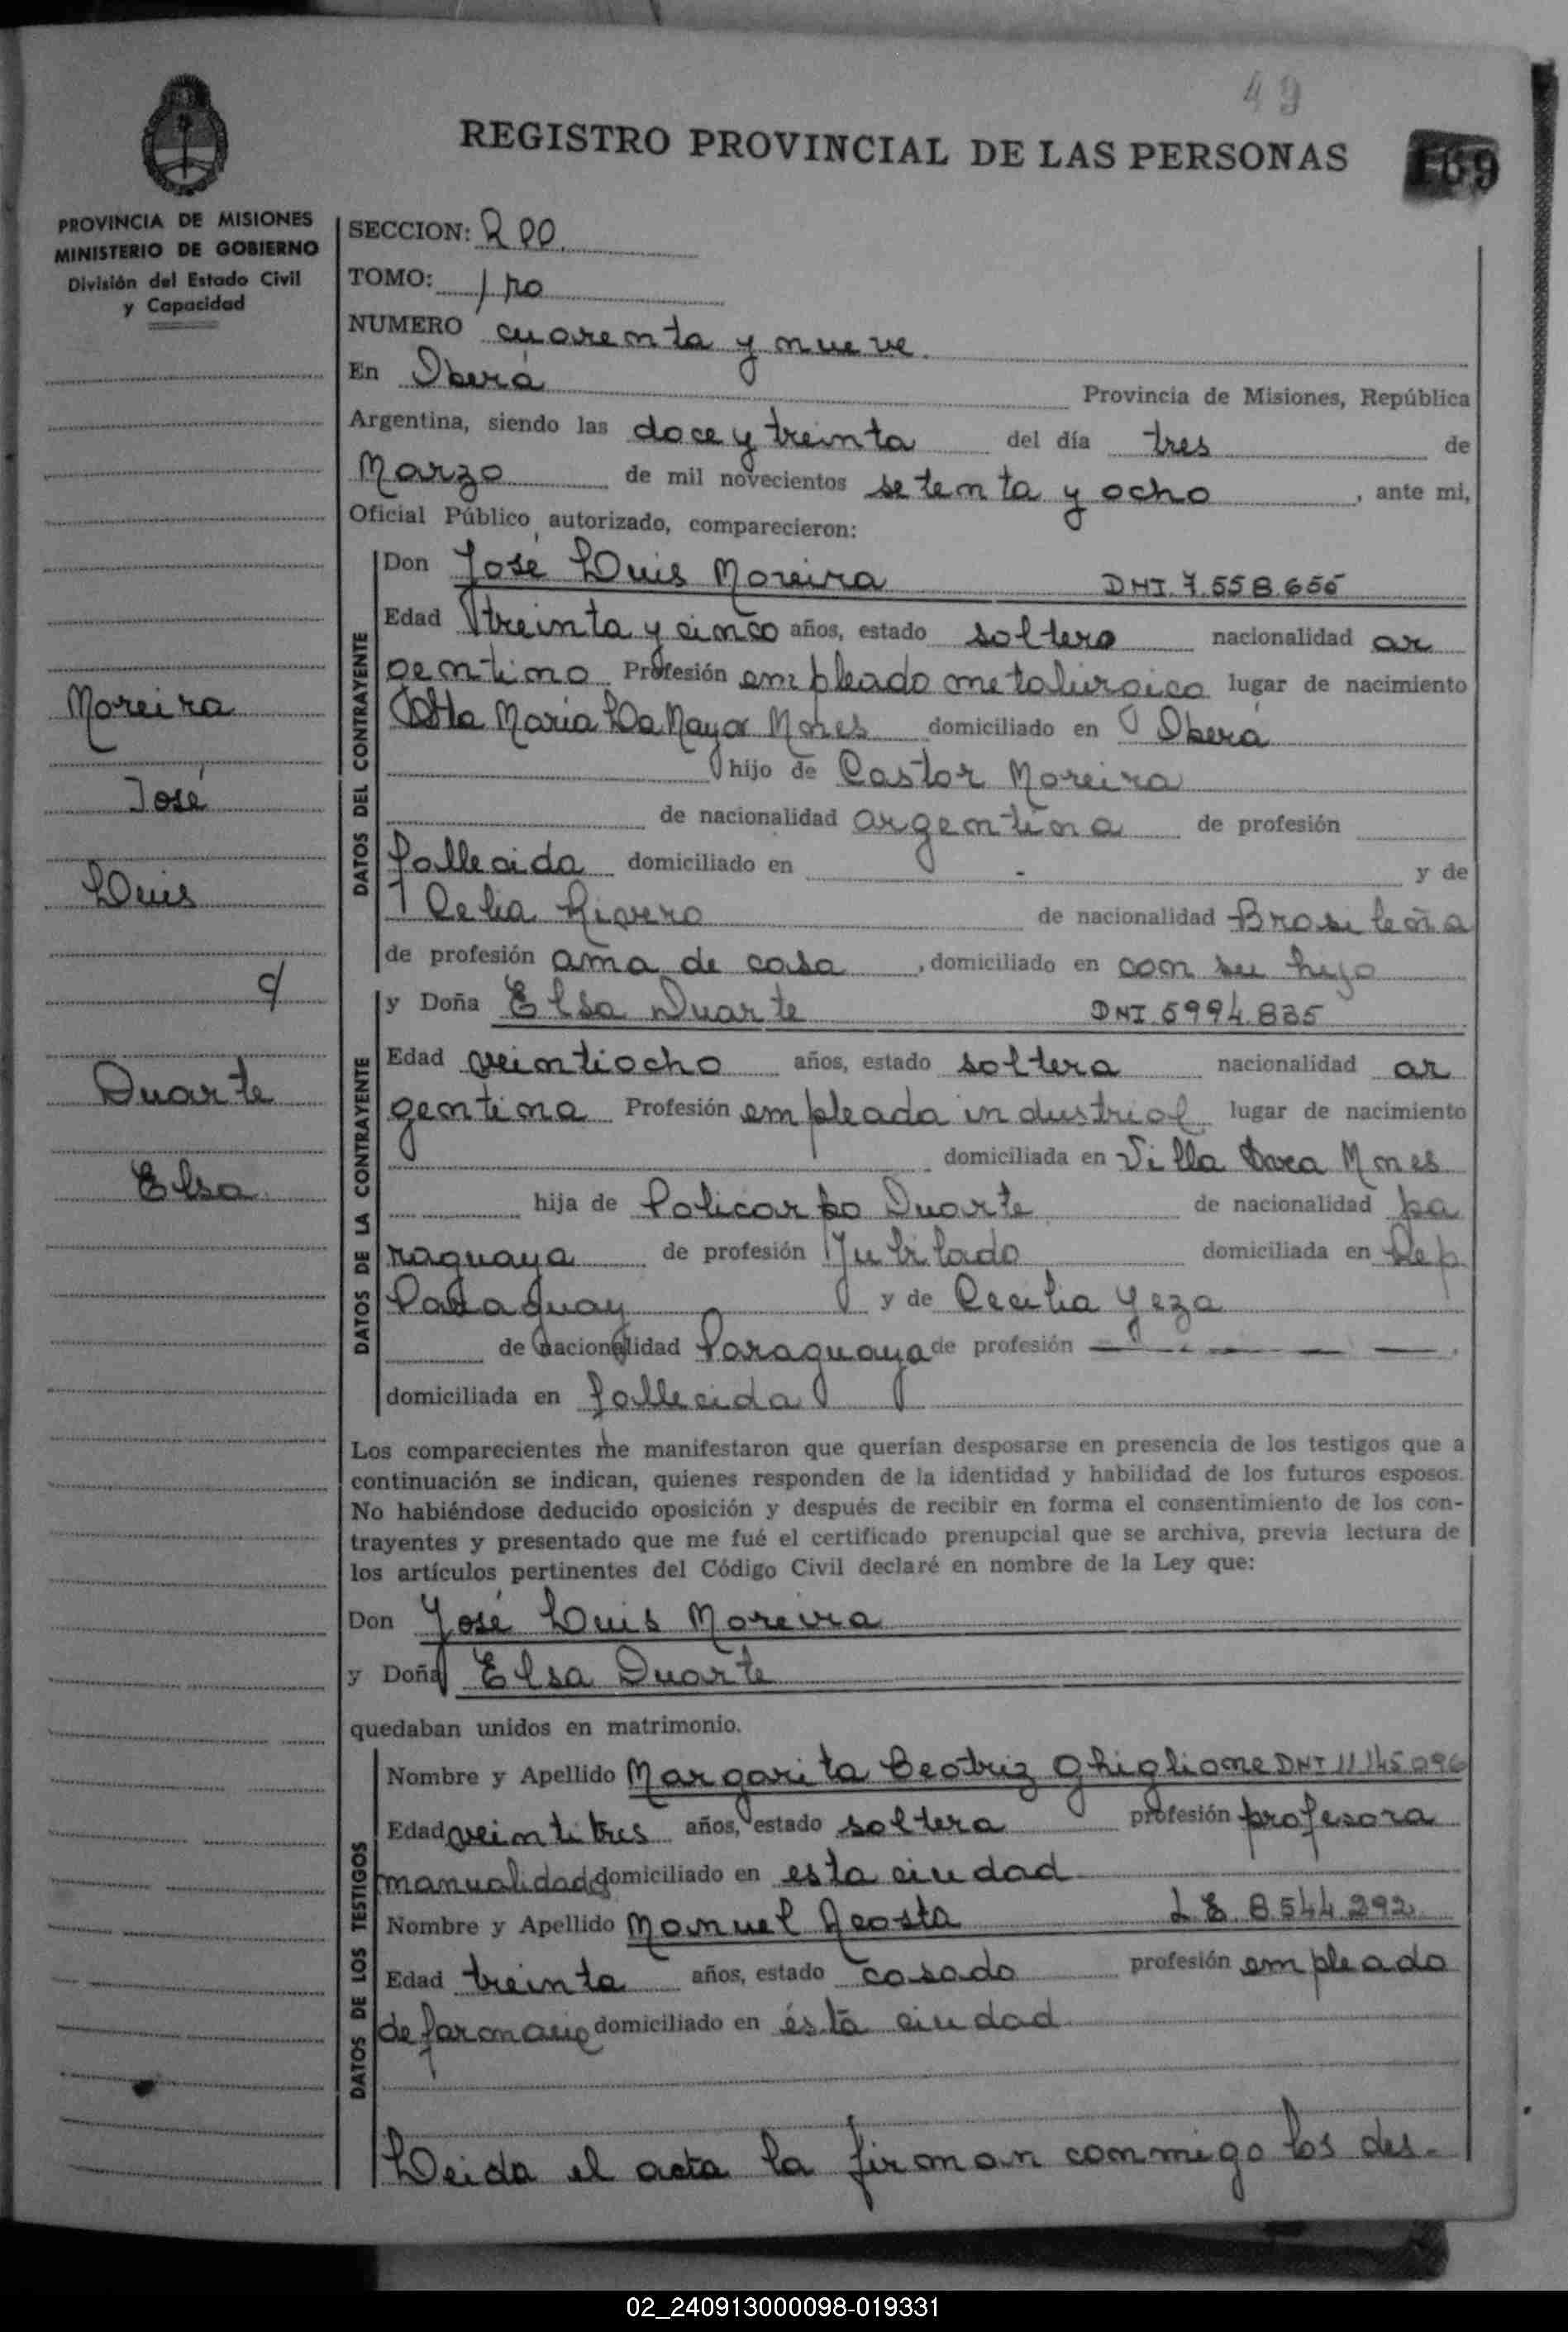 49
REGISTRO PROVINCIAL DE LAS PERSONAS
169
PROVINCIA DE MISIONES
MINISTERIO DE GOBIERNO
División del Estado Civil
y Capacidad
Moreira
José
Luis
c/
Duarte
Elsa
SECCION:
TOMO: 1ro
NUMERO cuarenta y nueve
En Oberá Provincia de Misiones, República
Argentina, siendo las doce y treinta del día tres de
Marzo de mil novecientos setenta y ocho, ante mi,
Oficial Público autorizado, comparecieron:
DATOS DEL CONTRAYENTE
Don José Luis Moreira DNI. 7.558.655
Edad treinta y cinco años, estado soltero nacionalidad ar
gentino Profesión empleado metalurgico lugar de nacimiento
Sta Maria La Mayor Mnes domiciliado en Oberá
hijo de Castor Moreira
de nacionalidad argentina de profesión
fallecido domiciliado en - y de
Celia Rivero de nacionalidad Brasileña
de profesión ama de casa, domiciliado en con su hijo
DATOS DE LA CONTRAYENTE
y Doña Elsa Duarte DNI. 5994.835
Edad veintiocho años, estado soltera nacionalidad ar
gentina Profesión empleada industrial lugar de nacimiento
domiciliada en Villa Mnes
hija de Policarpo Duarte de nacionalidad pa
raguaya de profesión Jubilado domiciliada en Rep
Paraguay y de Cecilia Yeza
de nacionalidad Paraguaya de profesión — — — —
domiciliada en fallecida
Los comparecientes me manifestaron que querían desposarse en presencia de los testigos que a
continuación se indican, quienes responden de la identidad y habilidad de los futuros esposos.
No habiéndose deducido oposición y después de recibir en forma el consentimiento de los con-
trayentes y presentado que me fué el certificado prenupcial que se archiva, previa lectura de
los artículos pertinentes del Código Civil declaré en nombre de la Ley que:
Don José Luis Moreira
y Doña Elsa Duarte
quedaban unidos en matrimonio.
DATOS DE LOS TESTIGOS
Nombre y Apellido Margarita Beatriz Ghiglione DNI 11.145.096
Edad veintitres años, estado soltera profesión profesora
manualidad domiciliado en esta ciudad
Nombre y Apellido Manuel Acosta L E 8544.292
Edad treinta años, estado casado profesión empleado
de farmacia domiciliado en ésta ciudad
Leida el acta la firman conmigo los des-
02_240913000098-019331